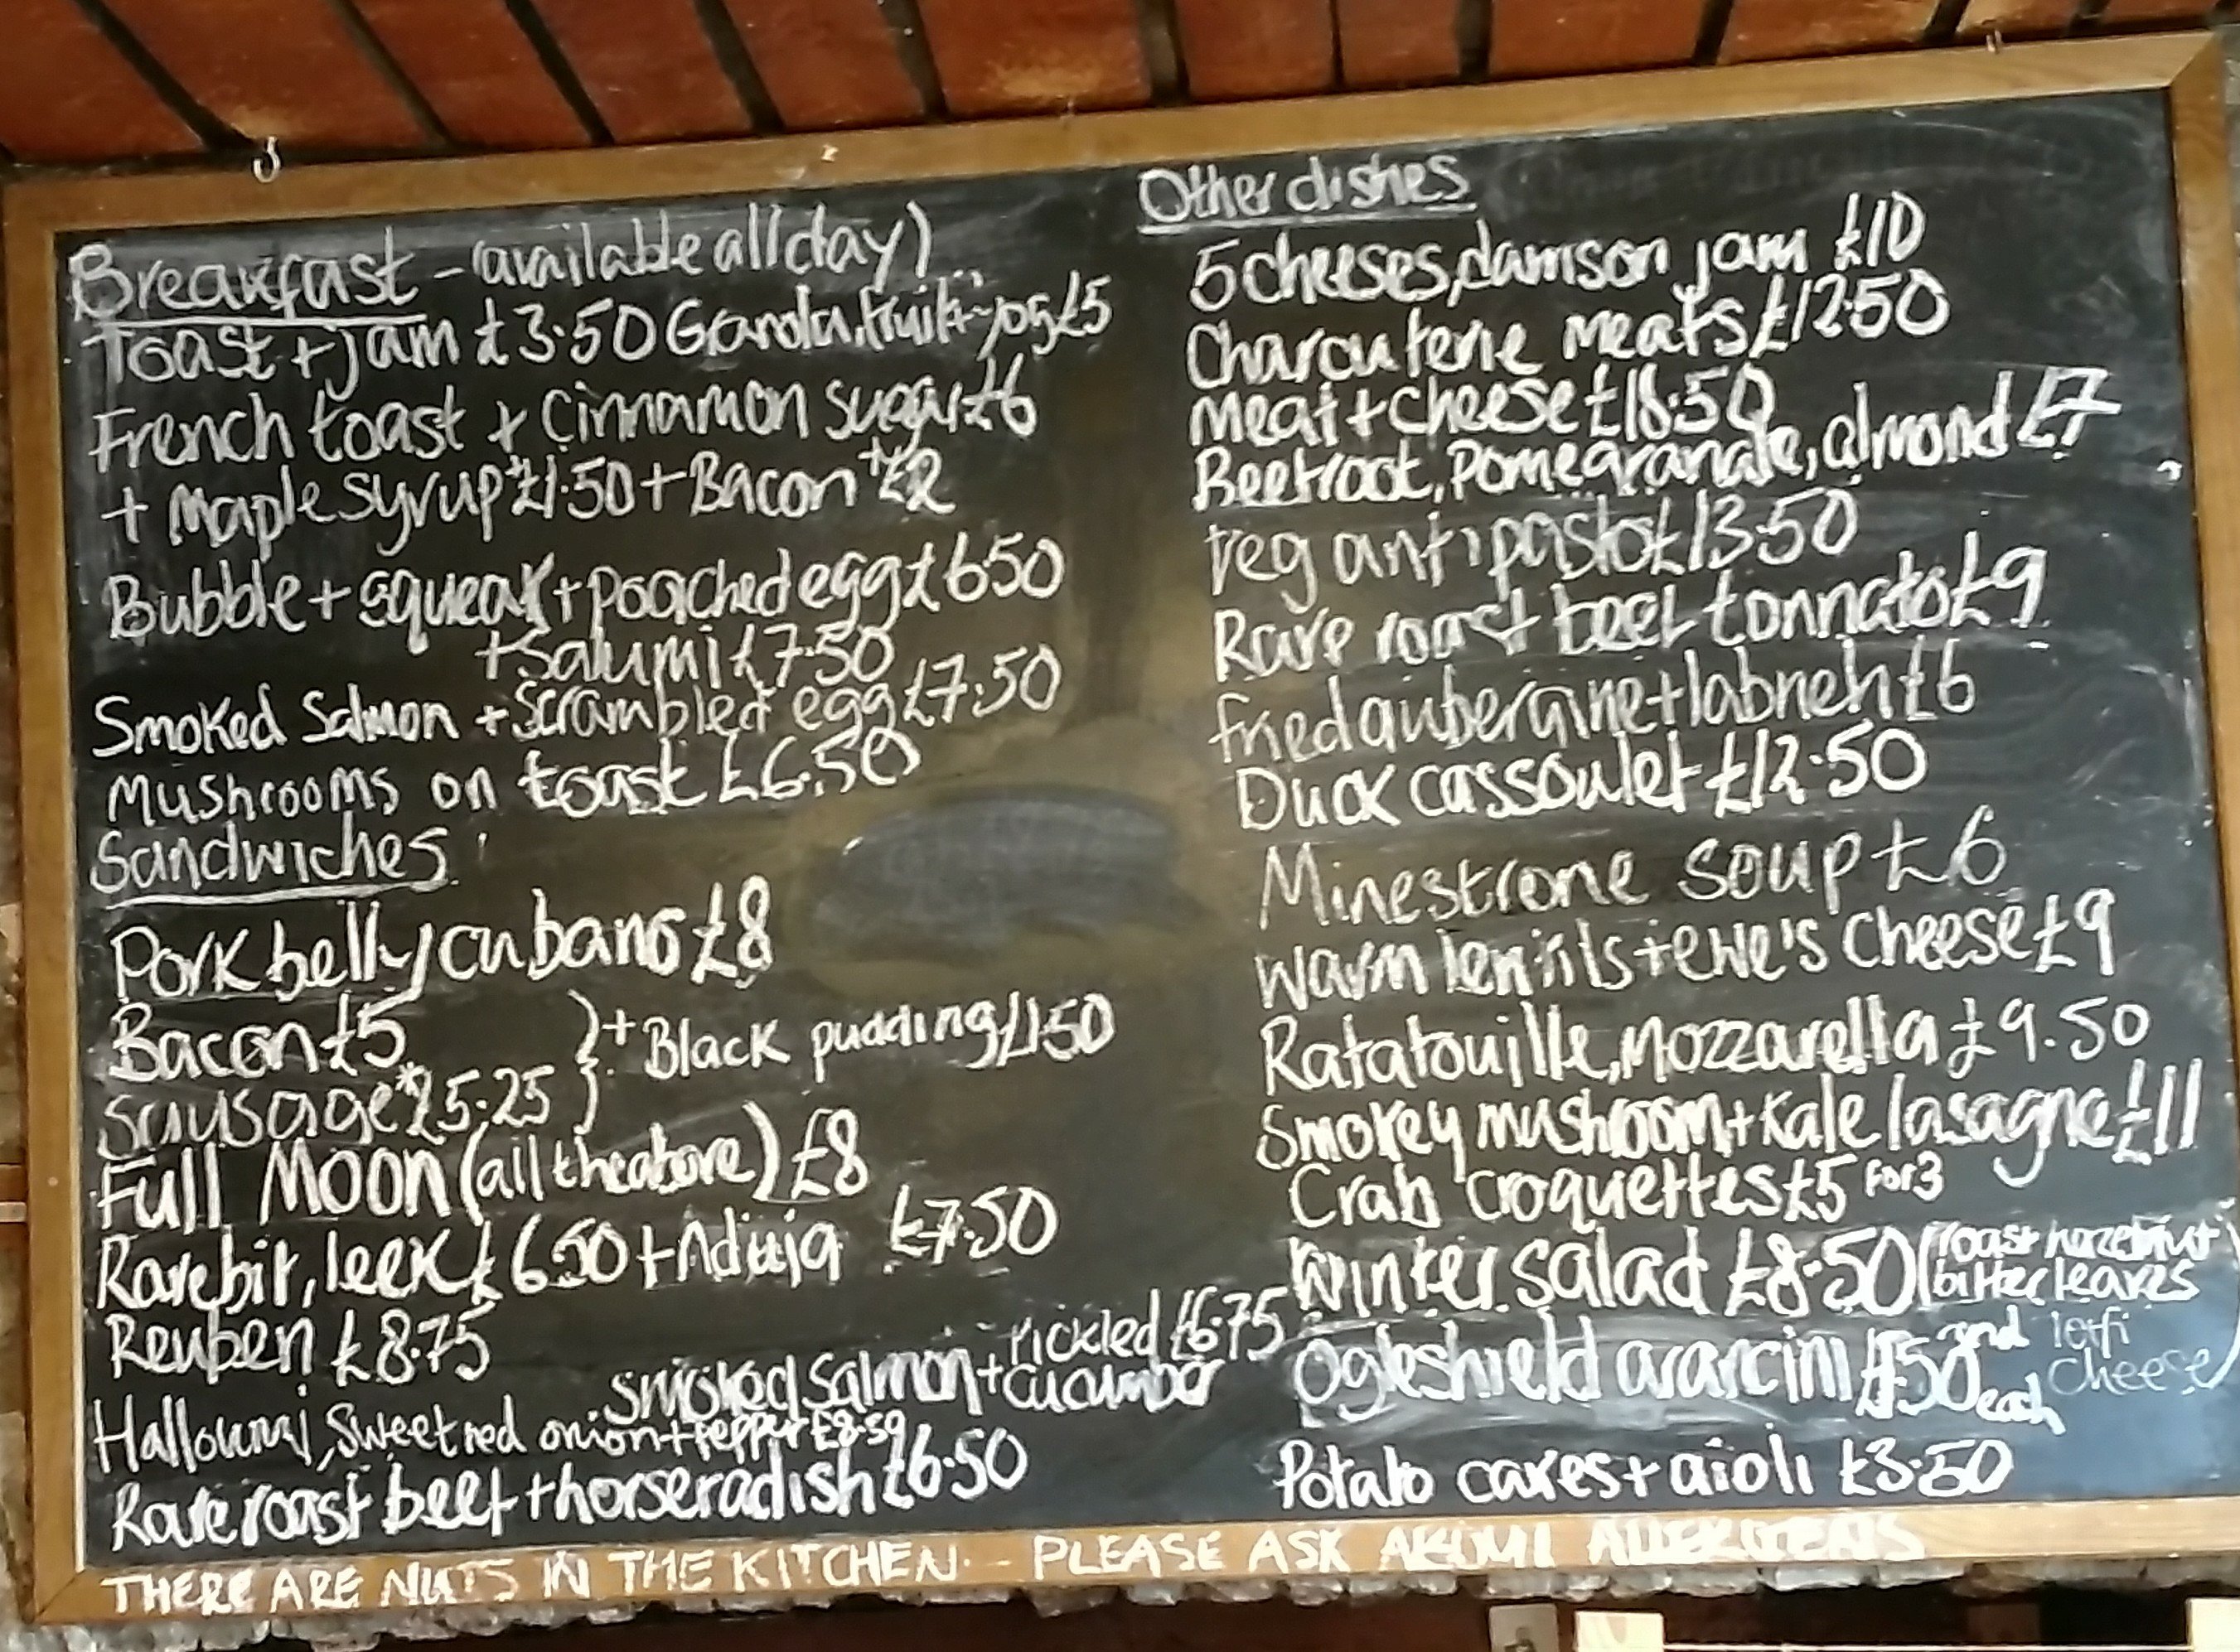 Breakfast - (available all day)
Toast + jam £3.50 Granola, fruit + yog £5
French toast + Cinnamon sugar £6
+ Maple syrup £1.50 + Bacon + £2
Bubble + squeak + poached egg £6.50
+ Salumi £7.50
Smoked Salmon + Scrambled egg £7.50
Mushrooms on toast £6.50
Sandwiches
Pork belly cubano £8
Bacon £5
Sausage* £5.25
} + Black pudding £1.50
Full Moon (all the above) £8
Rarebit, leek £6.50 + Nduja £7.50
Reuben £8.75
Smoked Salmon + Pickled cucumber £6.75
Halloumi, Sweet red onion + Pepper £8.50
Rare roast beef + horseradish £6.50
Other dishes
5 cheeses, damson jam £10
Charcuterie meats £12.50
Meat + Cheese £18.50
Beetroot, Pomegranate, almond £7
Veg antipasto £13.50
Rare roast beef tonnato £9
Fried aubergine + labneh £6
Duck cassoulet £12.50
Minestrone soup £6
Warm lentils + ewe's Cheese £9
Ratatouille, Mozzarella £9.50
Smokey mushroom + Kale lasagne £11
Crab croquettes £5 for 3
Winter salad £8.50 (roast hazelnut
bitter leaves
and
cheese)
Ogleshield arancini each
Potato cakes + aioli £3.50
THERE ARE NUTS IN THE KITCHEN. - PLEASE ASK ABOUT ALLERGENS